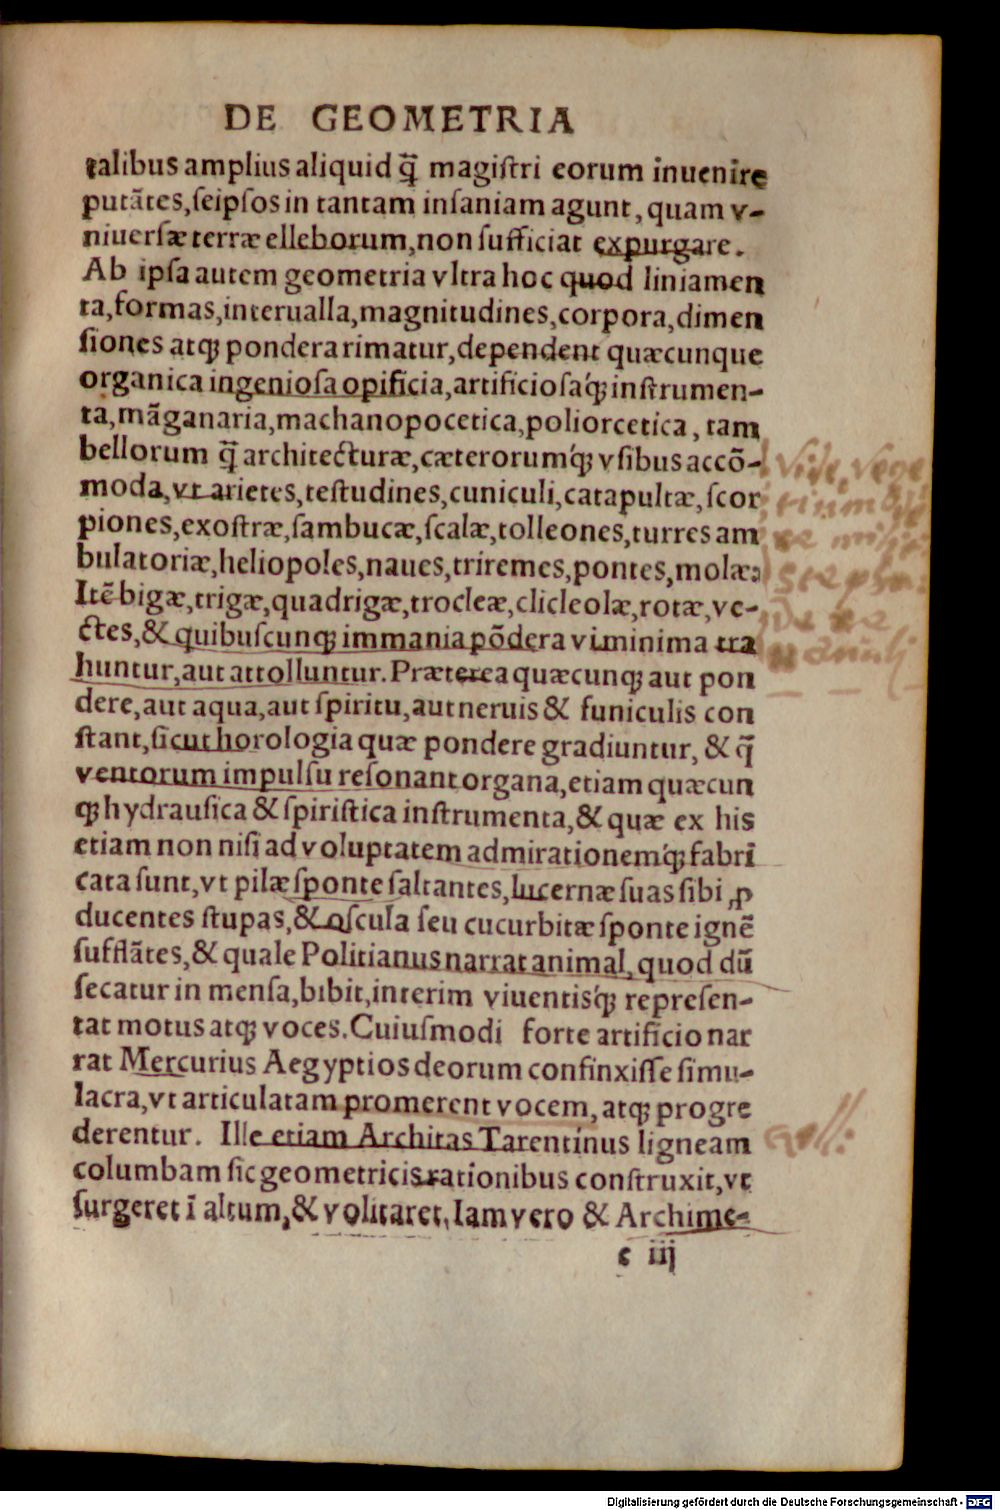 DE GEOMETRIA
talibus amplius aliquid q̄ magiſtri eorum inuenire
putātes,ſeipſos in tantam inſaniam agunt, quam v-
niuerſæ terræ elleborum,non ſufficiat expurgare.
Ab ipſa autem geometria vltra hoc quod liniamen
ta,formas,interualla,magnitudines,corpora,dimen
ſiones atqꝫ pondera rimatur,dependent quæcunque
organica ingenioſa opificia,artificioſaqꝫ inſtrumen-
ta,māganaria,machanopocetica,poliorcetica, tam
bellorum q̄ architecturæ,cæterorumqꝫ vſibus accō-
moda,vt arietes,teſtudines,cuniculi,catapultæ,ſcor
piones,exoſtræ,ſambucæ,ſcalæ,tolleones,turres am
bulatoriæ,heliopoles,naues,triremes,pontes,molæ:
Itē bigæ,trigæ,quadrigæ,trocleæ,clicleolæ,rotæ,ve-
ctes,& quibuſcunqꝫ immania pōdera vi minima tra
huntur,aut attolluntur. Præterea quæcunqꝫ aut pon
dere,aut aqua,aut ſpiritu,aut neruis & funiculis con
ſtant,ſicut horologia quæ pondere gradiuntur, & q̄
ventorum impulſu reſonant organa,etiam quæcun
qꝫ hydrauſica & ſpiriſtica inſtrumenta,& quæ ex his
etiam non niſi ad voluptatem admirationemqꝫ fabri
cata ſunt,vt pilæ ſponte ſaltantes,lucernæ ſuas ſibi ꝓ
ducentes ſtupas,& oſcula ſeu cucurbitæ ſponte ignē
ſufflātes,& quale Politianus narrat animal, quod dū
ſecatur in menſa,bibit,interim viuentisqꝫ repreſen-
tat motus atqꝫ voces. Cuiuſmodi forte artificio nar
rat Mercurius Aegyptios deorum confinxiſſe ſimu-
lacra,vt articulatam promerent vocem, atqꝫ progre
derentur. Ille etiam Architas Tarentinus ligneam
columbam ſic geometricis rationibus conſtruxit,vt
ſurgeret ī altum,& volitaret. Iam vero & Archime-
c iij
Vide, Vege
Gell:
Digitalisierung gefördert durch die Deutsche Forschungsgemeinschaft - DFG